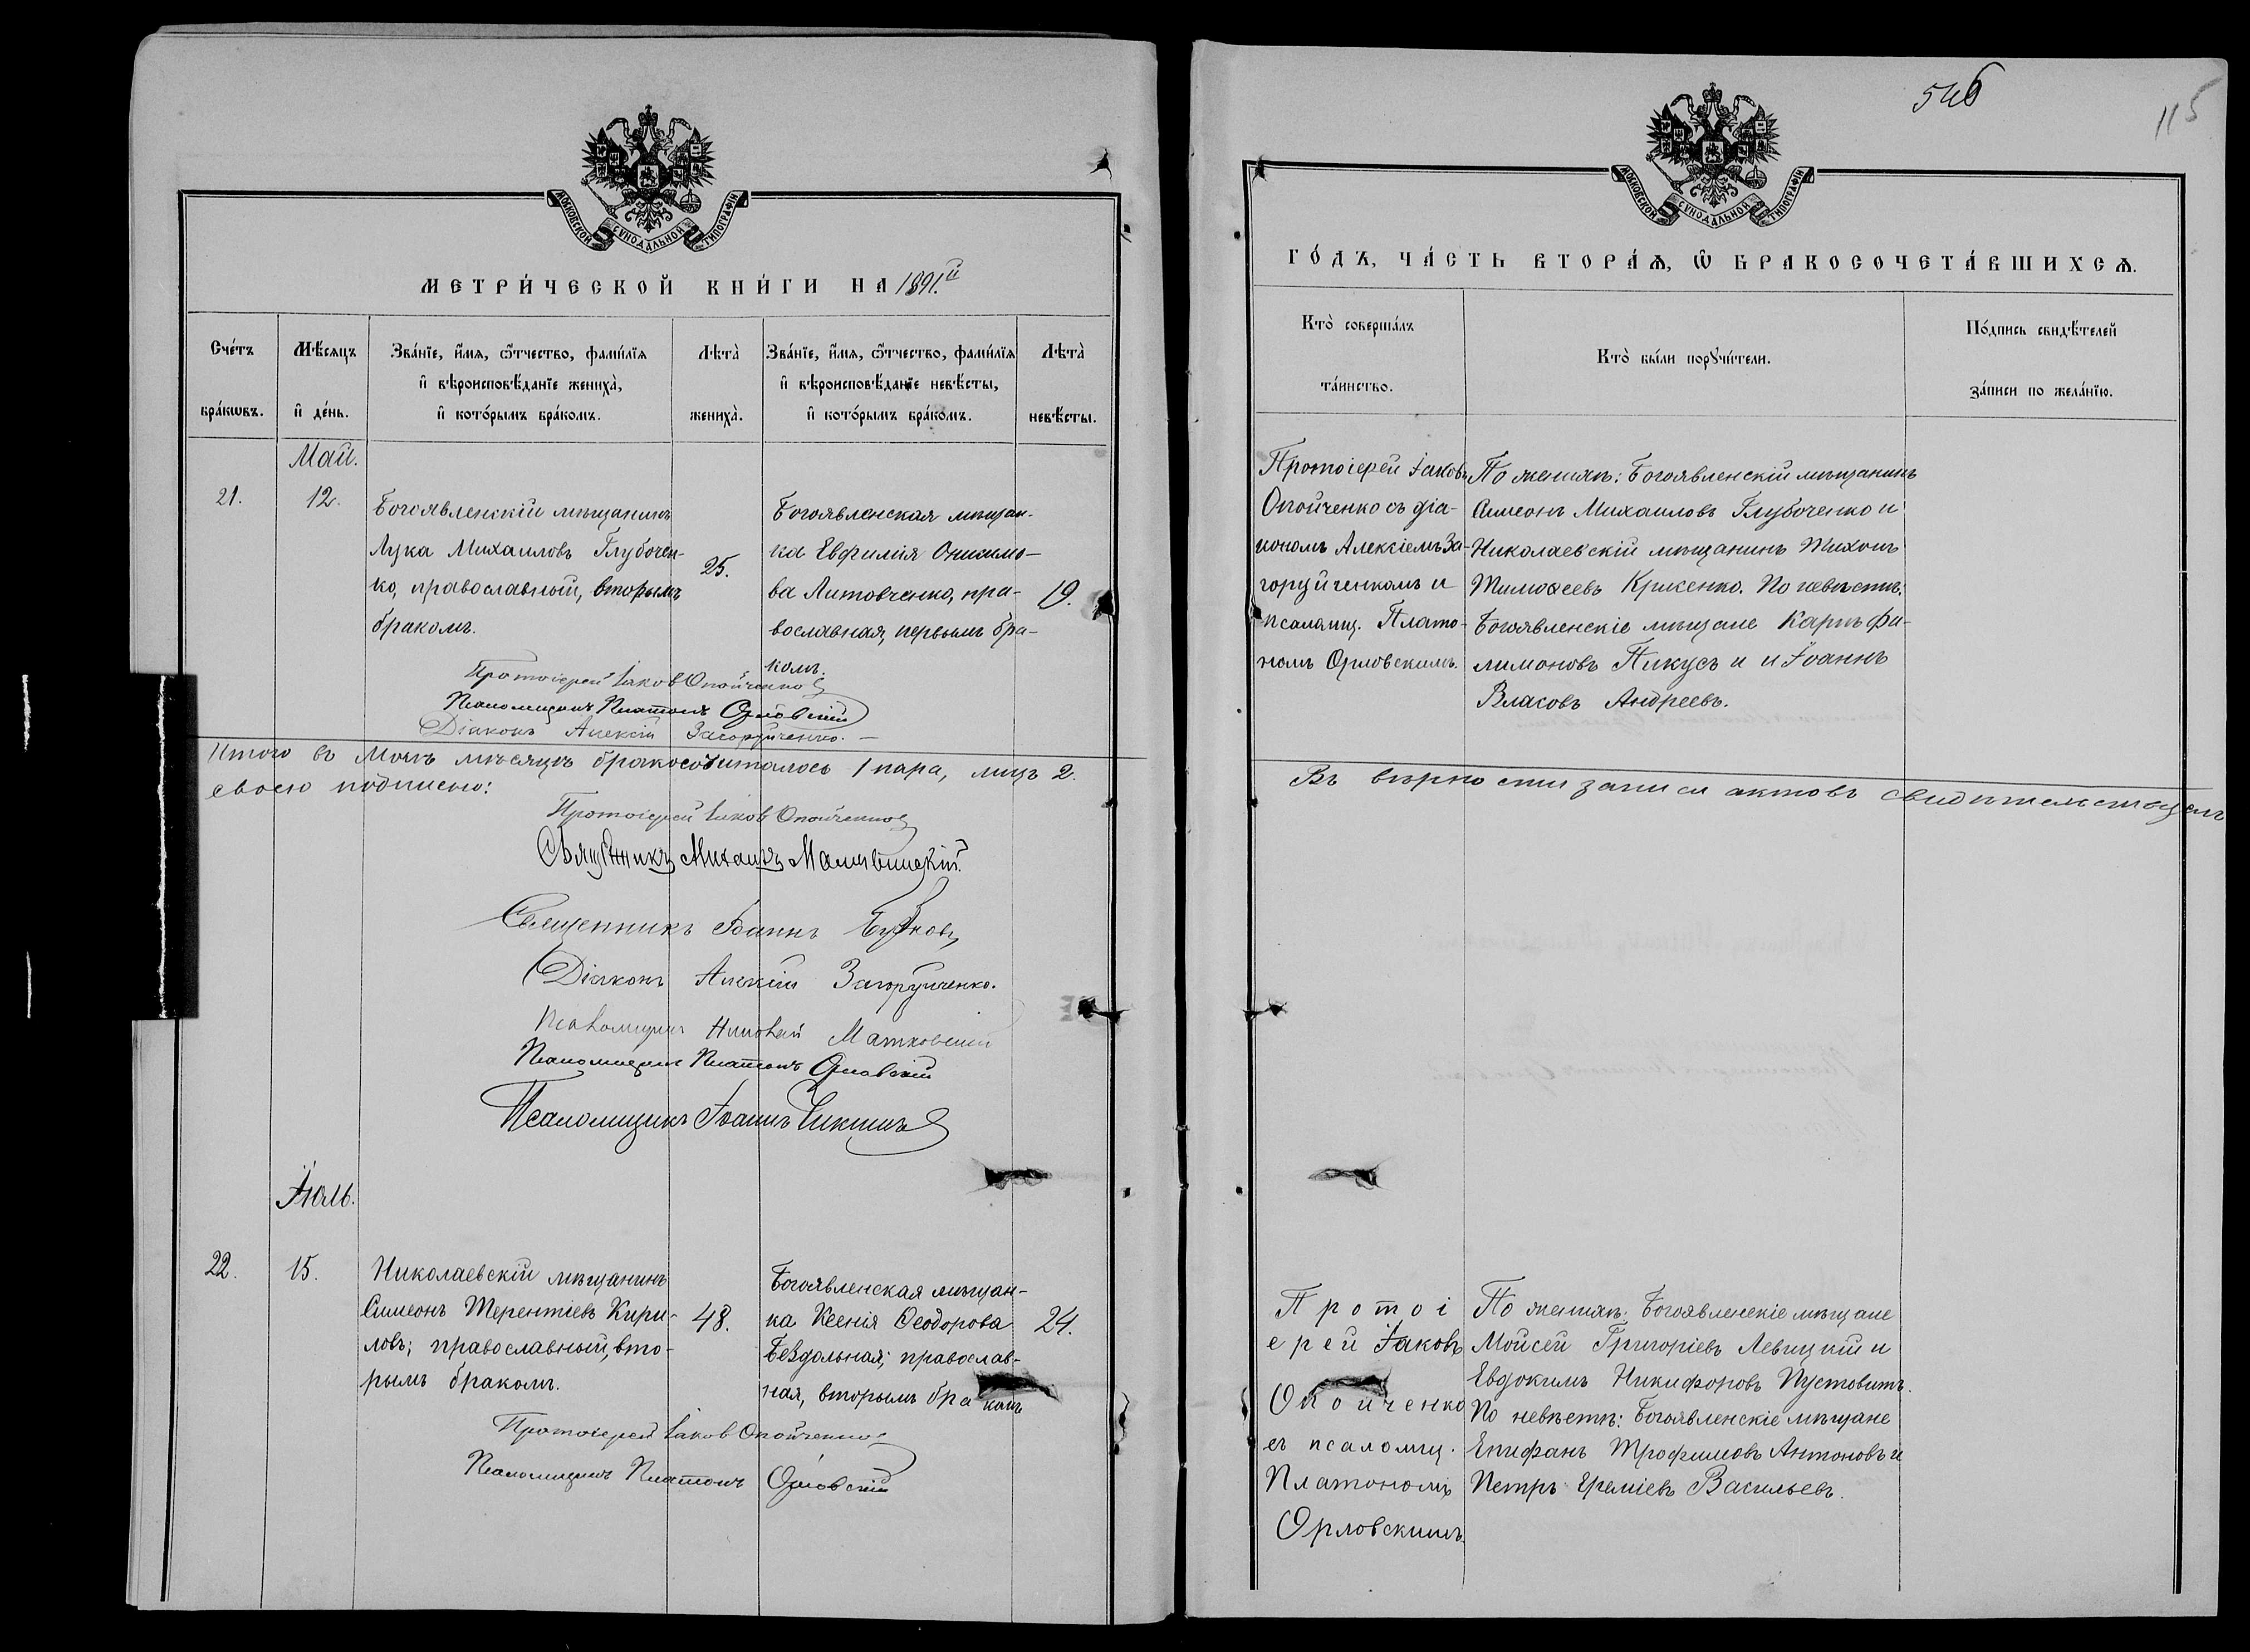 546
115
МОСКОВСКОЙ СѴНОДАЛЬНОЙ ТИПОГРАФІИ
МЕТРИ́ЧЕСКОЙ КНИ́ГИ НА 1891.й
Сче́тъ бра́кѡвъ.
Мѣ́сяцъ и҆ де́нь.
Зва́нїе, и҆́мѧ, ѻ҆́тчество, фами́лїѧ
и҆ вѣроисповѣ́данїе жениха̀,
и҆ кото́рымъ бра́комъ.
Лѣта̀ жениха̀.
Зва́нїе, и҆́мѧ, ѻ҆́тчество, фами́лїѧ
и҆ вѣроисповѣ́данїе невѣ́сты,
и҆ кото́рымъ бра́комъ.
Лѣта̀ невѣ́сты.
Май.
21.
12.
Богоявленскій мѣщанинъ
Лука Михаиловъ Глубочен-
ко, православный, вторымъ
бракомъ.
25.
Богоявленская мѣщан-
ка Евфимія Онисимо-
ва Литовченко, пра-
вославная, первымъ бра-
комъ.
19.
Протоіерей Іаковъ Опойченко
Псаломщикъ Платонъ Орловскій
Діаконъ Алексій Загоруйченко.
Итого въ Маѣ мѣсяцѣ бракосочеталось 1 пара, лицъ 2.
своею подписью:
Протоіерей Іаковъ Опойченко
Священникъ Михаилъ
Священникъ Іоаннъ
Діаконъ Алексій Загоруйченко.
Псаломщикъ Николай Матковскій
Псаломщикъ Платонъ Орловскій
Псаломщикъ Іоаннъ
Іюль.
22.
15.
Николаевскій мѣщанинъ
Симеонъ Терентіевъ Кири-
ловъ; православный, вто-
рымъ бракомъ.
48.
Богоявленская мѣщан-
ка Ксенія Ѳеодорова
Бездольная; православ-
ная, вторымъ бракомъ
24.
Протоіерей Іаковъ Опойченко
Псаломщикъ Платонъ Орловскій
МОСКОВСКОЙ СѴНОДАЛЬНОЙ ТИПОГРАФІИ
ГО́ДЪ, ЧА́СТЬ ВТОРА́Ѧ, Ѽ БРАКОСОЧЕТА́ВШИХСѦ.
Кто̀ соверша́лъ
та́инство.
Кто̀ бы́ли порꙋчи́тели.
По́дпись свидѣ́телей
за́писи по жела́нїю.
Протоіерей Іаковъ
Опойченко съ діа-
кономъ Алексіемъ За-
горуйченкомъ и
псаломщ. Плато-
номъ Орловскимъ.
По женихѣ: Богоявленскій мѣщанинъ
Симеонъ Михаиловъ Глубоченко и
Николаевскій мѣщанинъ Тихонъ
Тимоѳеевъ Крисенко. По невѣстѣ:
Богоявленскіе мѣщане Карпъ Фи-
лимоновъ Пикусъ и и Іоаннъ
Власовъ Андреевъ.
Въ вѣрности записи актовъ свидѣтельствуемъ
Протоі
ерей Іаковъ
Опойченко
съ псаломщ.
Платономъ
Орловскимъ.
По женихѣ: Богоявленскіе мѣщане
Мойсей Григоріевъ Левицкій и
Евдокимъ Никифоровъ Пустовитъ.
По невѣстѣ: Богоявленскіе мѣщане
Епифанъ Трофимовъ Антоновъ и
Петръ Ереміевъ Васильевъ.